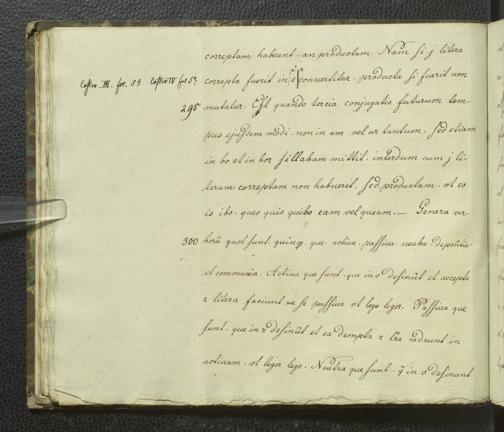 correptam habeant. an productam. Nam si j litera
Cassio III. for. 53 Cassio IV for 5. correpta fuerit in e convertitur. producta si fuerit non
295 mutatur. Est quando tercia conjugatio futurum tem-
pus ejusdem modi. non in am vel ar tantum, sed etiam
in bo et in bor sillabam mittit. interdum cum j li-
teram correptam non habuerit, sed productam. vt eo
is ibo. queo quis quibo eam vel queam. — Genera ver
300 borũ quot sunt. quinq. que. activa. passiva. neutra deponẽtia
et communia. Activa que sunt. que in o desinũt et accepta
r litera faciunt ex se passiva vt lego legor. Passiva que
sunt. que in r desinũt et ea dempta r lra redeunt in
activam. vt legor lego. Neutra que sunt. q̃ in o desinunt